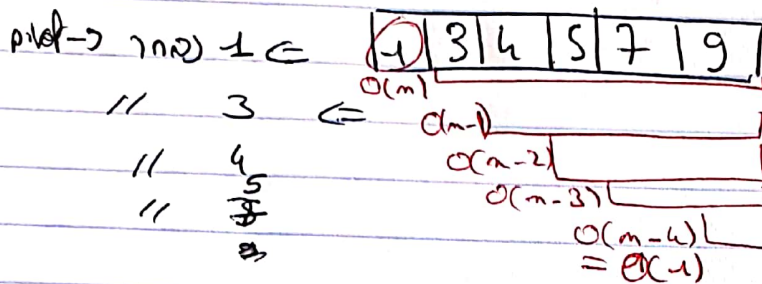 pivot → נבחר 1 ⇐ | 1 | 3 | 4 | 5 | 7 | 9
O(n)
// 3 ⇐ O(n-1)
// 4 O(n-2)
5
// O(n-3)
O(n-4)
= O(1)